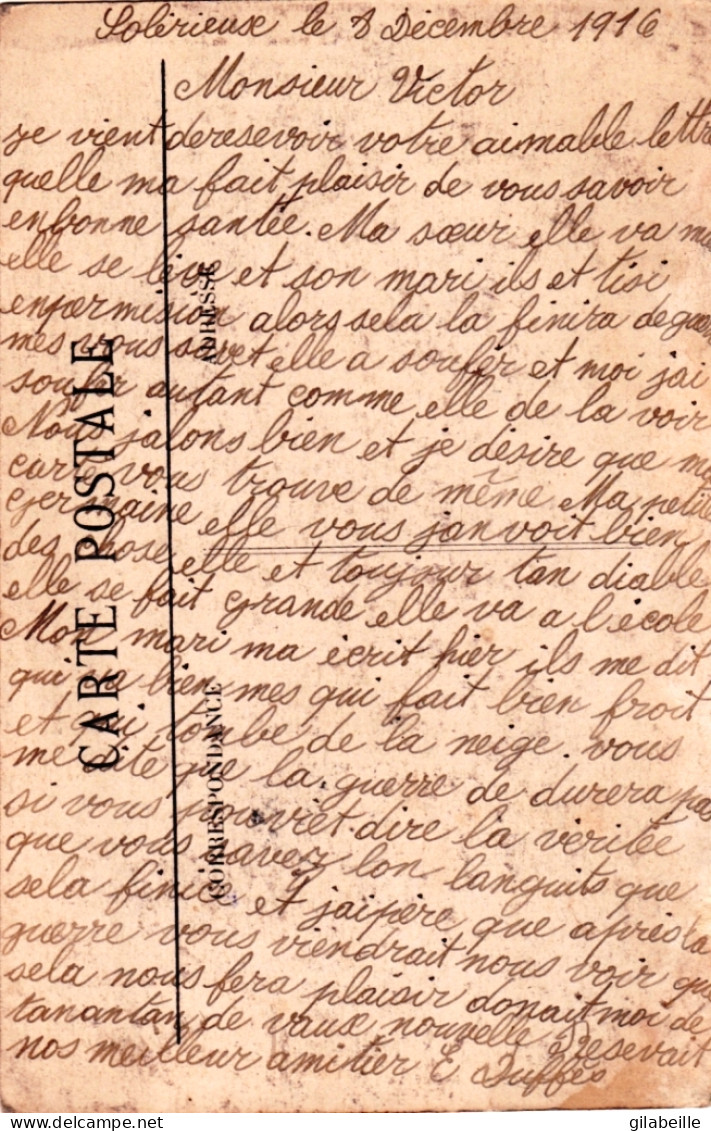 Solérieux le 8 Décembre 1916
Monsieur Victor
je vient deresevoir votre aimable lettre
quelle ma fait plaisir de vous savoir
enbonne santée. Ma sœur elle va mi
elle se lève et son mari ils et tisi
enpermision alors sela la finira de
mes vous savet elle a soufér et moi jai
soufér autant comme elle de la voir
Nous jalons bien et je désire que ma
carte vous trouve de même Ma petite
Germaine elle vous janvoit bien
des chose elle et toujour tan diable
elle se fait grande elle va a l'école
Mon mari ma écrit hier ils me dit
qui va bien mes qui fait bien froit
et qui tombe de la neige. vous
me dite que la guerre de durera pas
si vous pouvriet dire la vérité
que vous savez lon languits que
sela finice et jaipère que après la
guerre vous viendrait nous voir que
sela nous fera plaisir donait moi de
tanantan de vaux nouvelle Resevait
nos meilleur amitier E Duffès
CARTE POSTALE
CORRESPONDANCE
ADRESSE
delcampe.net
gilabeille